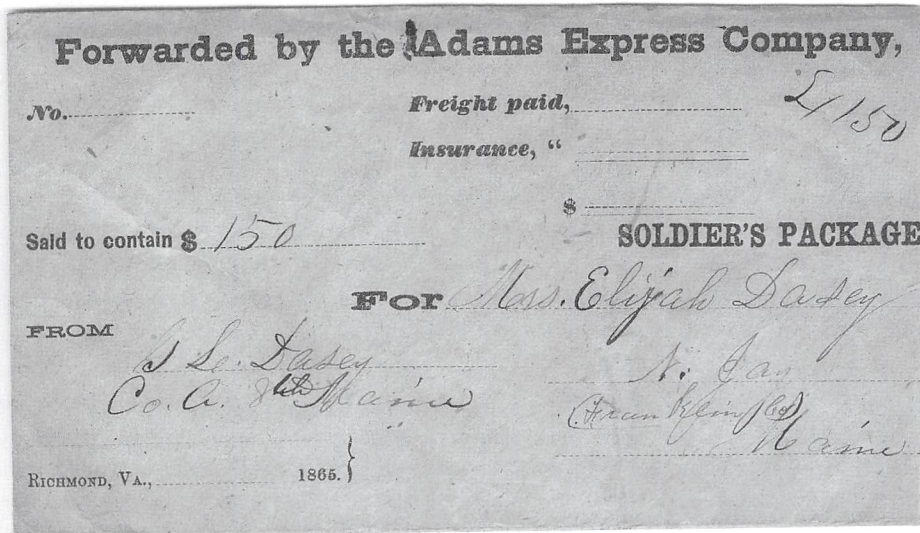 Forwarded by the Adams Express Company,
No.
Freight paid,
150
Insurance, "
$
Said to contain $ 150
SOLDIER'S PACKAGE
For Mrs. Elijah Dasey
FROM
L. Dasey
N. Jay
Co. A. 8th Maine
(Franklin Co)
Maine
RICHMOND, VA., 1865.}